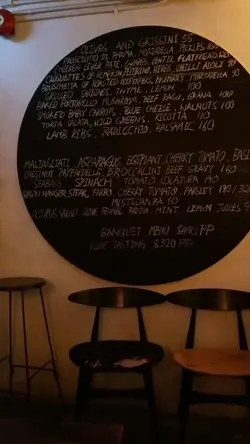 OLIVES AND GRISSINI 55
PROSCIUTTO DI PARMA, MOZZARELLA, PICKLES
CHICKEN LIVER PATE, GRAPES, LENTIL FLATBREAD
CROQUETTES OF PUMPKIN,
BRUSCHETTA OF ROASTED PEPPERS, ROSEMARY, MOZZARELLA 90
GRILLED SARDINES, THYME, LEMON 100
BAKED PORTOBELLO MUSHROOM, BEEF RAGU, GRANA 100
SMOKED BABY CARROTS, BLUE CHEESE, WALNUTS 100
TUNA SALATA, WILD GREENS, RICOTTA 110
LAMB RIBS, RADICCHIO, BALSAMIC 160
MALTAGLIATI, ASPARAGUS, EGGPLANT, CHERRY TOMATO,
CHESTNUT PAPPARDELLE, BROCCOLINI, BEEF GRAVY 160
SPINACH, TOMATO, COLATURA 190
HANGER STEAK, FARRO, CHERRY TOMATO, PARSLEY 190/
MESTICANZA 60
MINT LEMON
BANQUET MENU $450 PP
WINE TASTING $320 PP